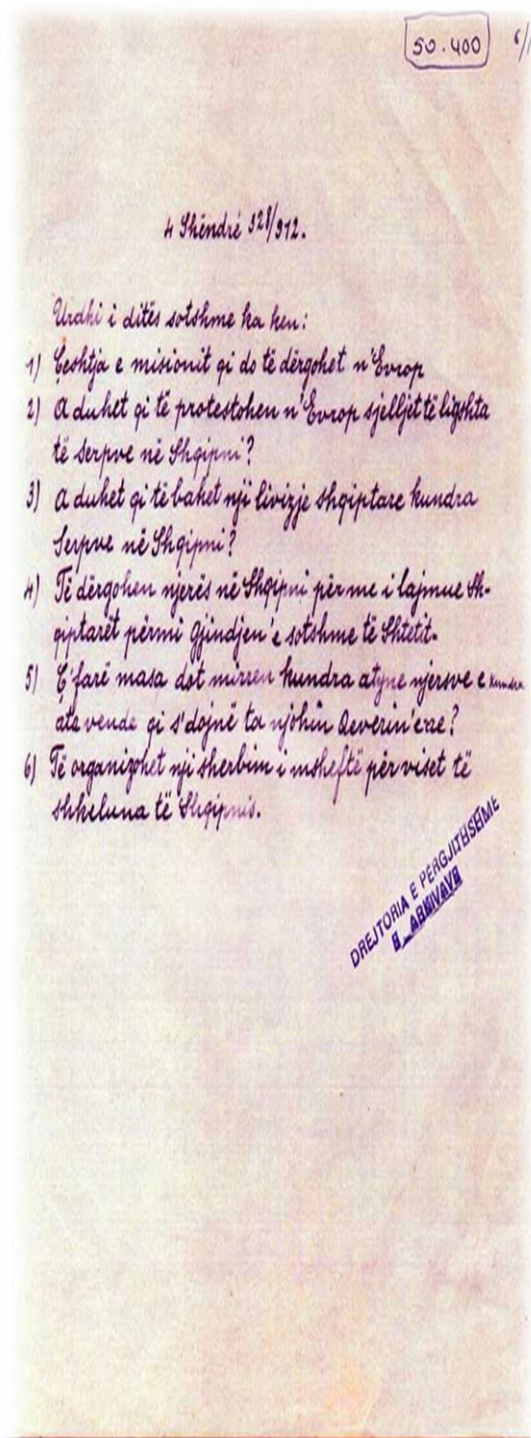 50.400
4 Shëndré 328/912.
Urdhi i ditës sotshme ka ken:
1) Çeshtja e misionit qi do të dërgohet n'Evrop
2) A duhet qi të protestohen n'Evrop sjelljet të ligshta
të serpve në Shqipni?
3) A duhet qi të bahet nji livizje shqiptare kundra
Serpve në Shqipni?
4) Të dërgohen njerës në Shqipni për me i lajmue Sh-
qiptarët përmi gjindjen'e sotshme të Shtetit.
5) Ç'farë masa dot mirren kundra atyne njersve e kundra
ata vende qi s'dojnë ta njohin Qeverin'
6) Të organizohet nji sherbim i msheftë për viset të
shkeluna të Shqipnis.
DREJTORIA E PËRGJITHSHME
E ARKIVAVE